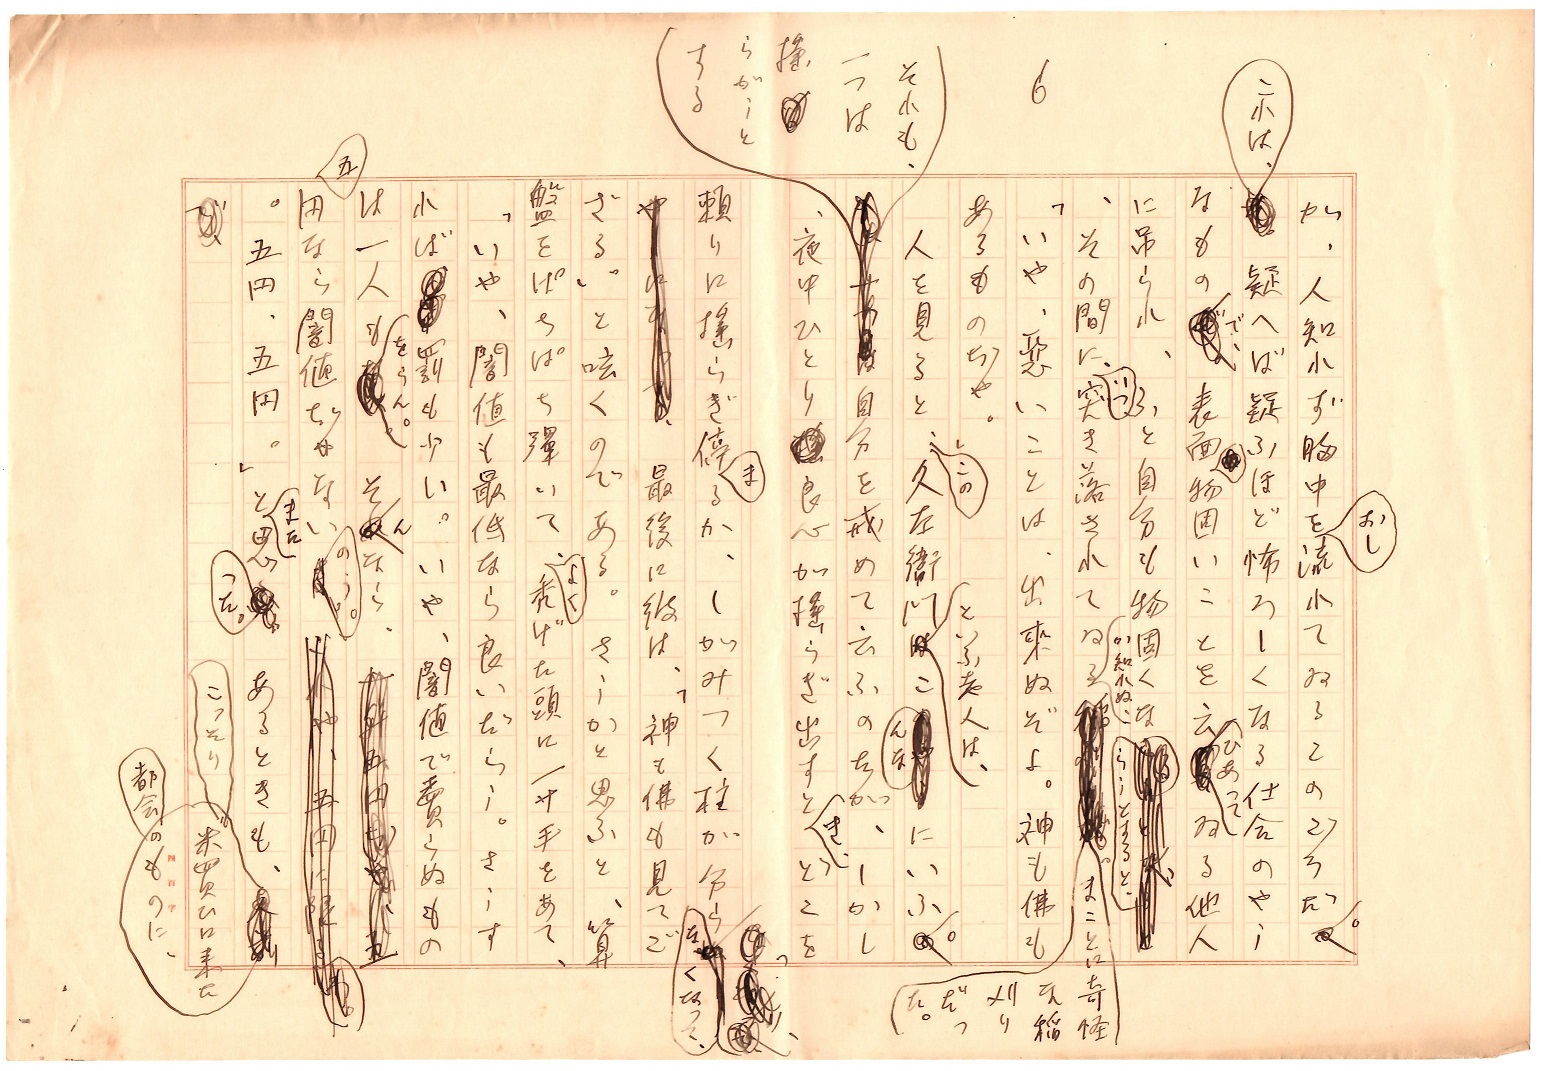 6
が、人知れず胸中をおし流れてゐるこのころだ。
これは、疑へば疑ふほど怖ろしくなる仕合のやう
なもので、表面物固いことを云ひあってゐる他人
に吊られ、いつふと自分も物固くならうとすると、
、その間に、突き落されてゐるか知れぬ、まことに奇怪な稲刈りだった。
「いや、悪いことは、出来ぬぞよ。神も佛も
あるものぢや。」
人を見ると、この久左衛門といふ老人は、こんなにいふ。
それも、一つは揺らがうとする自分を戒めて云ふのだが、しかし
、夜中ひとり良心が揺らぎ出すとき, どこを
頼りに揺らぎ停まるか、しがみつく柱が分らなくなって、
最後に彼は、「神も佛も見てご
ざる」と呟くのである。さうかと思ふと、算
盤をぱちぱち弾いて、よく禿げた頭に一寸手をあて、
「いや、闇値も最低なら良いだらう。さうす
れば罰も少い。いや、闇値で賣らぬもの
は一人もをらん。そんなら、五
円なら闇値ぢゃないのう。
。五円、五円。」と、また思った。あるときも、
こっそり米買ひに来た都会のものに、
四百字